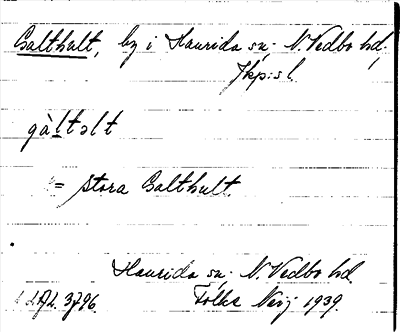 Galthult, by i Haurida sn. N. Vedbo hd,
Jkp:s l.
gàltəlt
= Stora Galthult
Haurida sn. N. Vedbo hd.
3796. Folke Norij 1939.